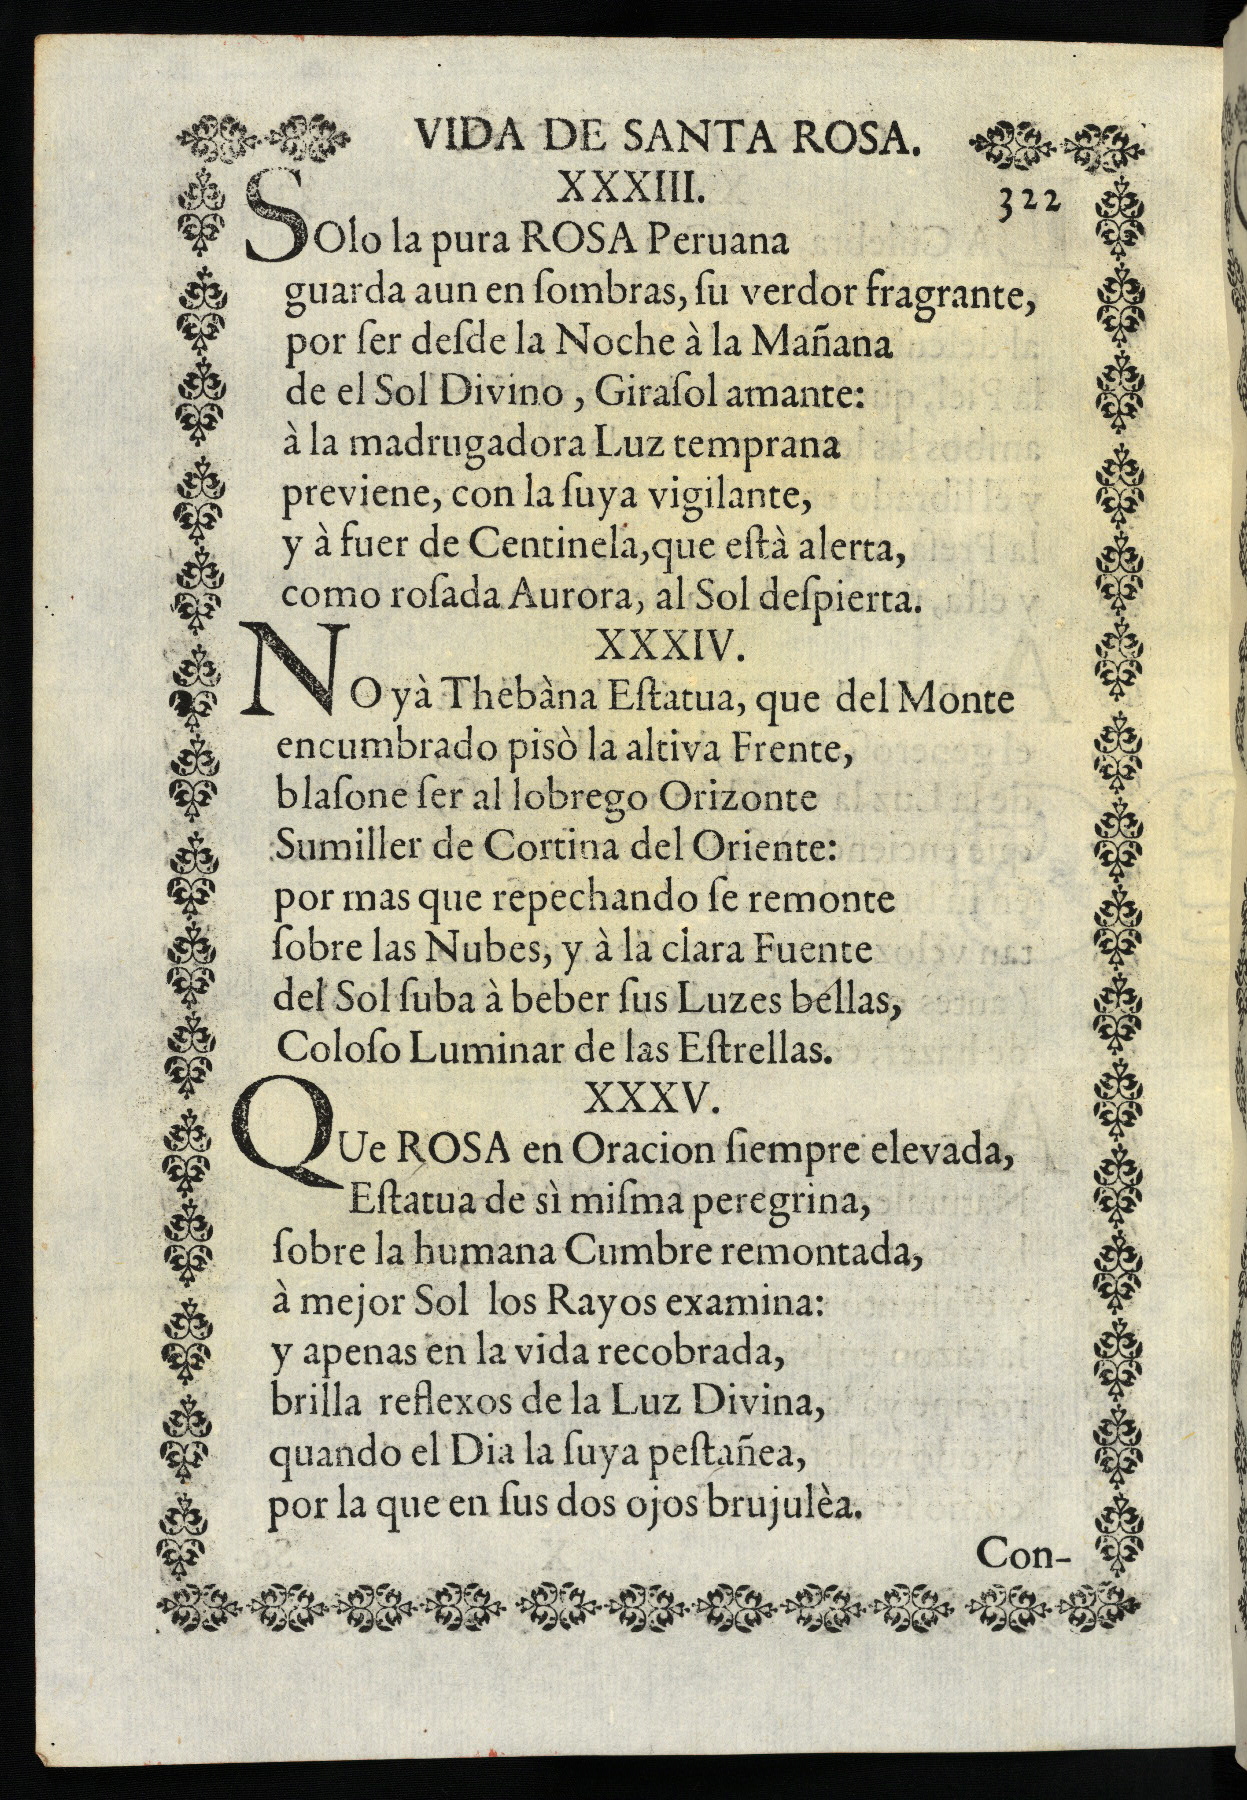 VIDA DE SANTA ROSA.
XXXIII.
322
SOlo la pura ROSA Peruana
guarda aun en ſombras, ſu verdor fragrante,
por ſer deſde la Noche à la Mañana
de el Sol Divino, Giraſol amante:
à la madrugadora Luz temprana
previene, con la ſuya vigilante,
y à fuer de Centinela, que eſtà alerta,
como roſada Aurora, al Sol deſpierta.
XXXIV.
NO yà Thebàna Eſtatua, que del Monte
encumbrado pisò la altiva Frente,
blaſone ſer al lobrego Orizonte
Sumiller de Cortina del Oriente:
por mas que repechando ſe remonte
ſobre las Nubes, y à la clara Fuente
del Sol ſuba à beber ſus Luzes bellas,
Coloſo Luminar de las Eſtrellas.
XXXV.
QUe ROSA en Oracion ſiempre elevada,
Eſtatua de sì miſma peregrina,
ſobre la humana Cumbre remontada,
à mejor Sol los Rayos examina:
y apenas en la vida recobrada,
brilla reflexos de la Luz Divina,
quando el Dia la ſuya peſtañea,
por la que en ſus dos ojos brujulèa.
Con-